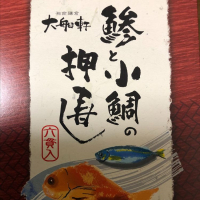 大船軒
鯵と小鯛の
押寿し
六貫入